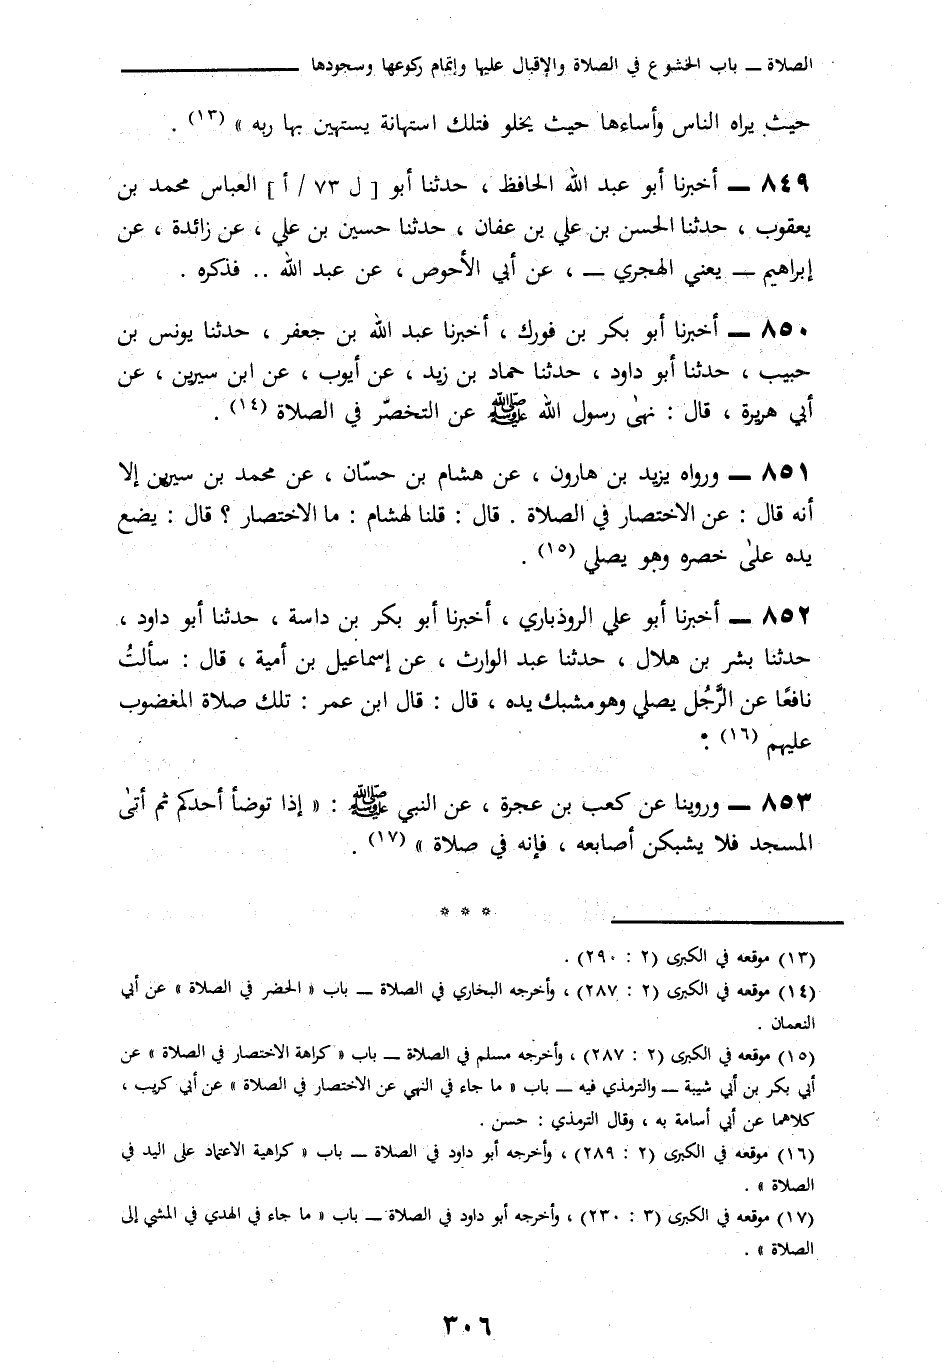 الصلاة ـــ باب الخشوع في الصلاة والإقبال عليها وإتمام ركوعها وسجودها
حيث يراه الناس وأساءها حيث يخلو فتلك استهانة يستهين بها ربه » (١٣) .
٨٤٩ ـــ أخبرنا أبو عبد الله الحافظ ، حدثنا أبو [ ل ٧٣ / أ ] العباس محمد بن
يعقوب ، حدثنا الحسن بن علي بن عفان ، حدثنا حسين بن علي ، عن زائدة ، عن
إبراهيم ـــ يعني الهجري ـــ ، عن أبي الأحوص ، عن عبد الله .. فذكره .
٨٥٠ ـــ أخبرنا أبو بكر بن فورك ، أخبرنا عبد الله بن جعفر ، حدثنا يونس بن
حبيب ، حدثنا أبو داود ، حدثنا حماد بن زيد ، عن أيوب ، عن ابن سيرين ، عن
أبي هريرة ، قال : نهىٰ رسول الله ﷺ عن التخصّر في الصلاة (١٤) .
٨٥١ ـــ ورواه يزيد بن هارون ، عن هشام بن حسّان ، عن محمد بن سيرين إلا
أنه قال : عن الاختصار في الصلاة . قال : قلنا لهشام : ما الاختصار ؟ قال : يضع
يده علىٰ خصره وهو يصلي (١٥) .
٨٥٢ ـــ أخبرنا أبو علي الروذباري ، أخبرنا أبو بكر بن داسة ، حدثنا أبو داود ،
حدثنا بشر بن هلال ، حدثنا عبد الوارث ، عن إسماعيل بن أمية ، قال : سألتُ
نافعًا عن الرَّجُل يصلي وهو مشبك يده ، قال : قال ابن عمر : تلك صلاة المغضوب
عليهم (١٦) .
٨٥٣ ـــ وروينا عن كعب بن عجرة ، عن النبي ﷺ : « إذا توضأ أحدكم ثم أتىٰ
المسجد فلا يشبكن أصابعه ، فإنه في صلاة » (١٧) .
* * *
(١٣) موقعه في الكبرى (٢ : ٢٩٠) .
(١٤) موقعه في الكبرى (٢ : ٢٨٧) ، وأخرجه البخاري في الصلاة ـــ باب « الخضر في الصلاة » عن أبي
النعمان .
(١٥) موقعه في الكبرى (٢ : ٢٨٧) ، وأخرجه مسلم في الصلاة ـــ باب « كراهة الاختصار في الصلاة » عن
أبي بكر بن أبي شيبة ـــ والترمذي فيه ـــ باب « ما جاء في النهي عن الاختصار في الصلاة » عن أبي كريب ،
كلاهما عن أبي أسامة به ، وقال الترمذي : حسن .
(١٦) موقعه في الكبرى (٢ : ٢٨٩) ، وأخرجه أبو داود في الصلاة ـــ باب « كراهية الاعتماد على اليد في
الصلاة » .
(١٧) موقعه في الكبرى (٣ : ٢٣٠) ، وأخرجه أبو داود في الصلاة ـــ باب « ما جاء في الهدي في المشي إلى
الصلاة » .
٣٠٦